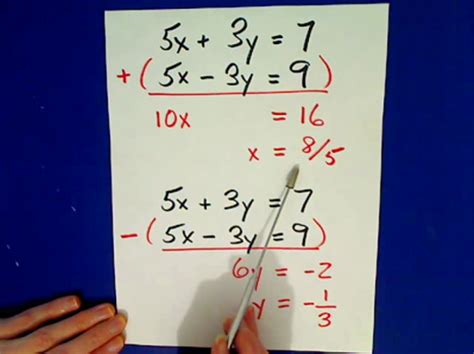 5x + 3y = 7
+ ( 5x - 3y = 9 )
10x = 16
x = 8/5
5x + 3y = 7
- ( 5x - 3y = 9 )
6y = -2
y = -1/3